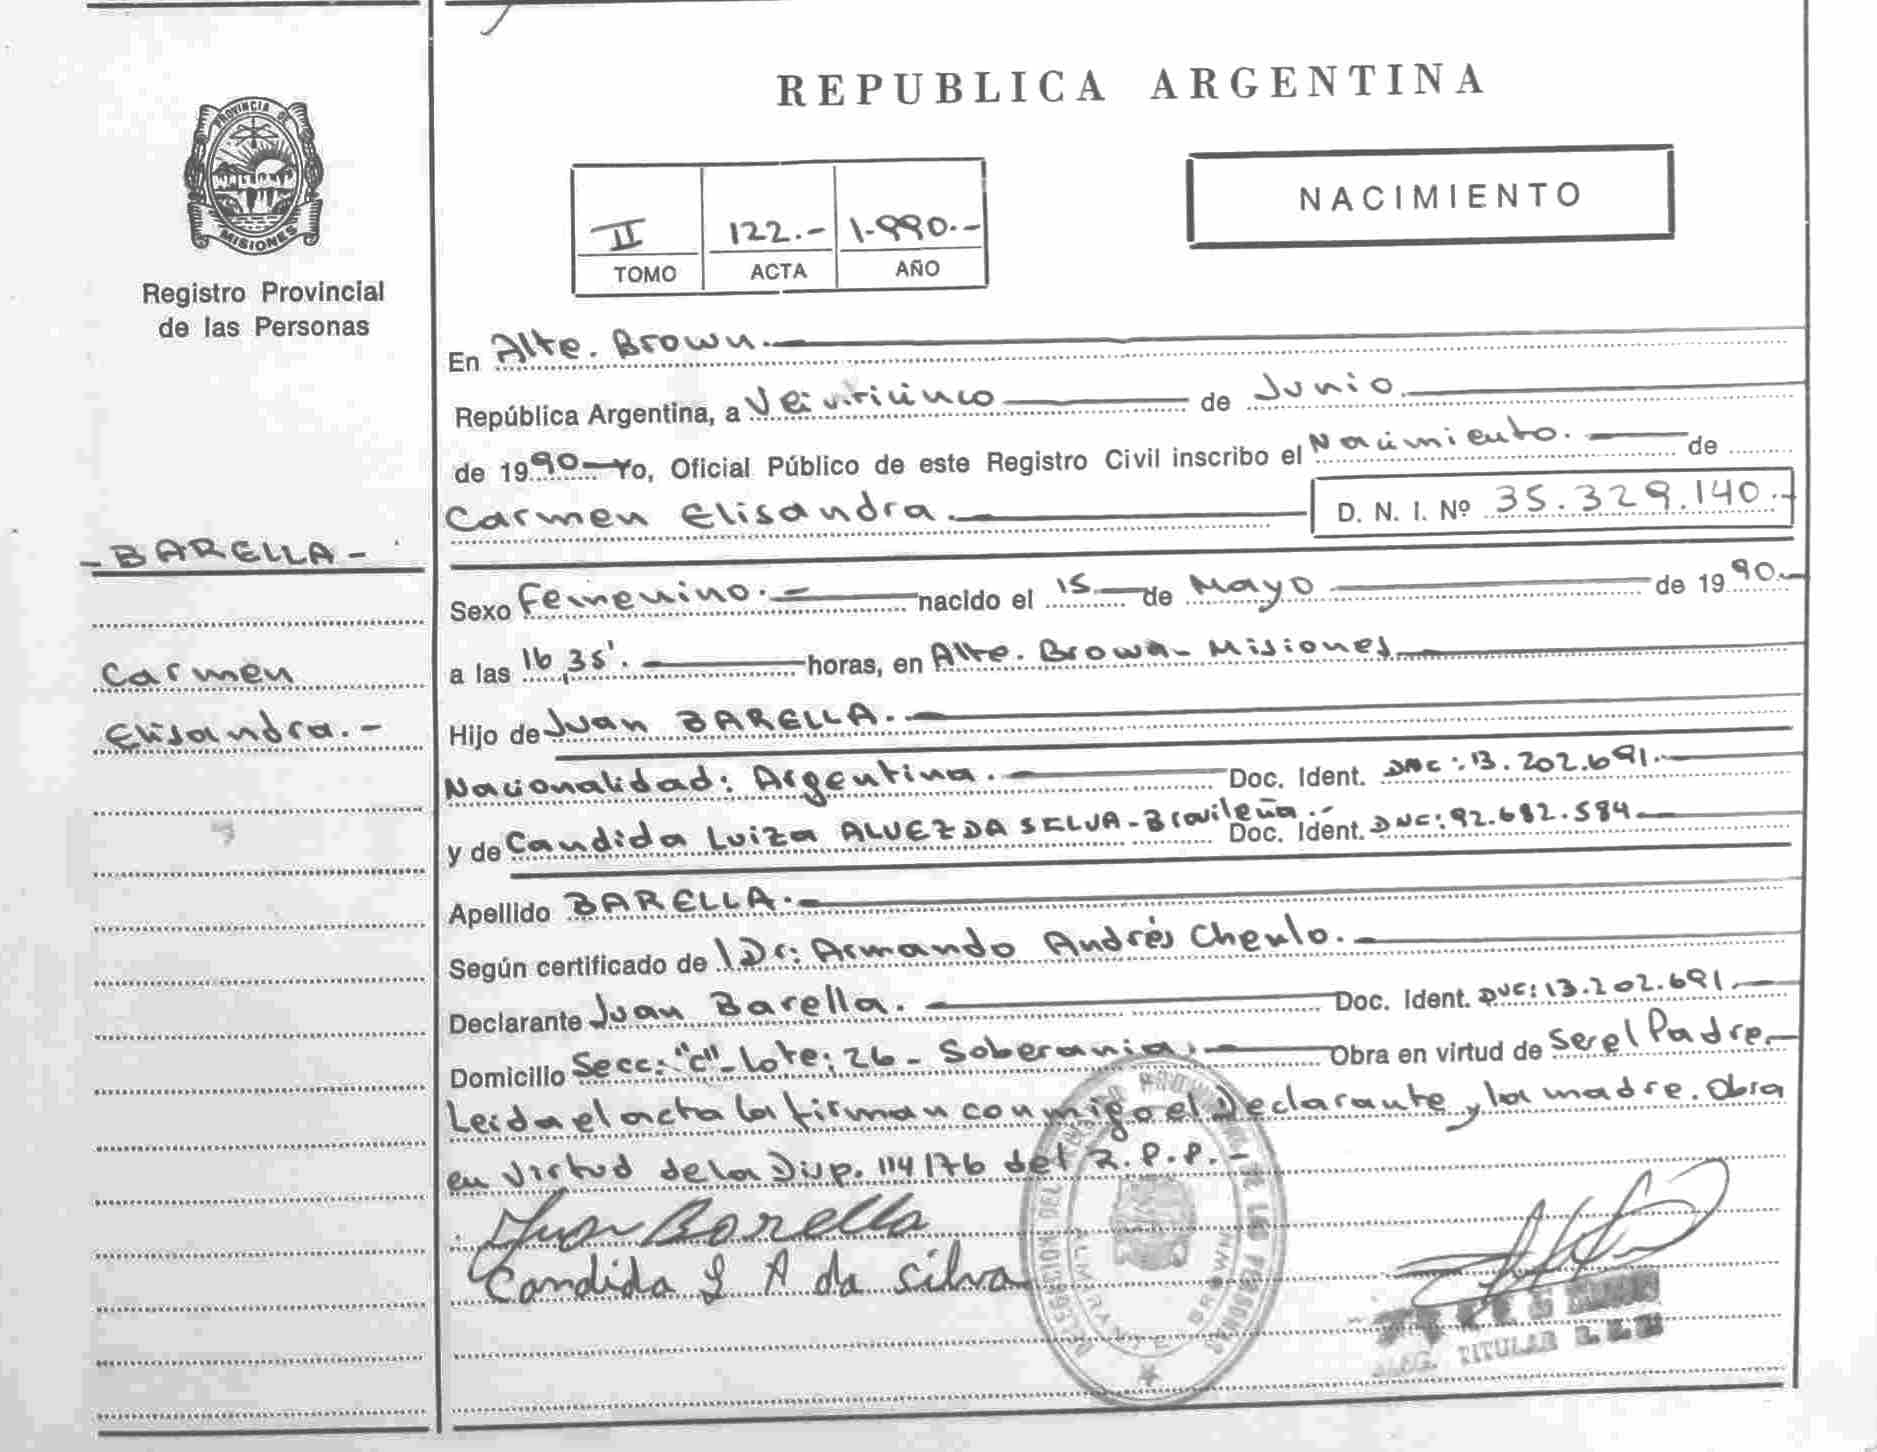 REPUBLICA ARGENTINA
PROVINCIA DE
MISIONES
Registro Provincial
de las Personas
NACIMIENTO
II 122.- 1-990.-
TOMO ACTA AÑO
En Alte. Brown.
República Argentina, a Veinticinco de Junio.
de 1990 Yo, Oficial Público de este Registro Civil inscribo el Nacimiento. de
Carmen Elisandra. D. N. I. Nº 35.329.140.-
- BARELLA -
Carmen
Elisandra.-
Sexo Femenino. nacido el 15 de Mayo de 1990.
a las 16,35'. horas, en Alte. Brown - Misiones
Hijo de Juan BARELLA.
Nacionalidad: Argentina. Doc. Ident. DNI: 13.202.691.
y de Candida Luiza ALVEZ DA SELVA - Brasileña.- Doc. Ident. DNI: 92.682.584
Apellido BARELLA.
Según certificado de Dr: Armando Andrés
Declarante Juan Barella. Doc. Ident. DNI: 13.202.691
Domicilio Secc: "C" - Lote: 26 - Soberania. Obra en virtud de Ser el Padre.
Leida el acta la firman conmigo el Declarante y la madre. Obra
en virtud de la Disp. 114/76 del R.P.P.-
Juan Barella
Candida L A da silva
DELEGACION DEL PROVINCIAL DE LAS PERSONAS
ALMIRANTE BROWN
TITULAR